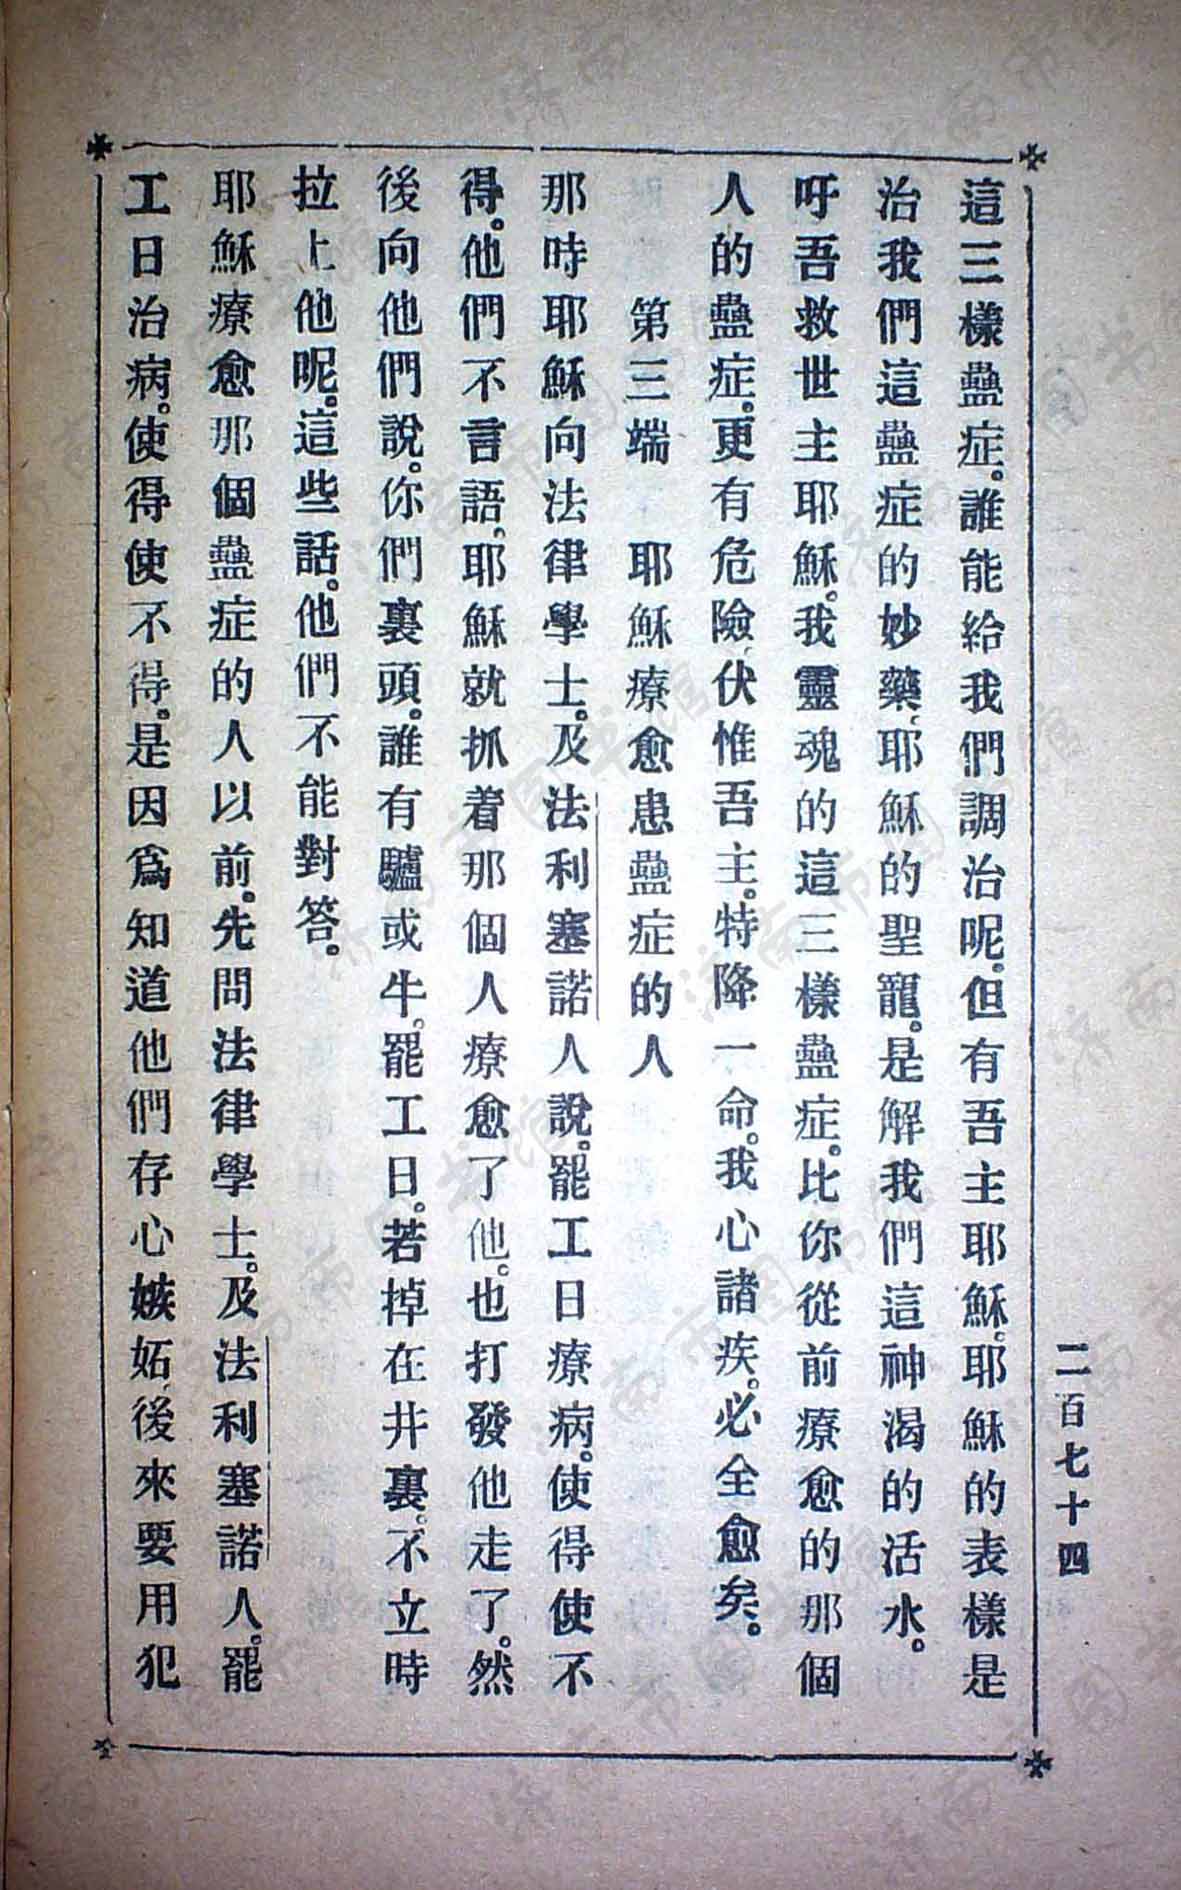 二百七十四
這三樣蠱症。誰能給我們調治呢。但有吾主耶穌、耶穌的表樣是
治我們這蠱症的妙藥、耶穌的聖寵。是解我們這神渴的活水。
吁吾救世主耶穌。我靈魂的這三樣蠱症。比你從前療愈的那個
人的蠱症。更有危險、伏惟吾主。特降一命。我心諸疾。必全愈矣。
第三端　耶穌療愈患蠱症的人
那時耶穌向法律學士。及法利塞諾人說。罷工日療病。使得使不
得。他們不言語、耶穌就抓着那個人療愈了他。也打發他走了。然
後向他們說。你們裏頭。誰有驢或牛。罷工日。若掉在井裏。不立時
拉上他呢。這些話。他們不能對答。
耶穌療愈那個蠱症的人以前。先問法律學士。及法利塞諾人。罷
工日治病。使得使不得。是因爲知道他們存心嫉妬、後來要用犯
济南市图书馆